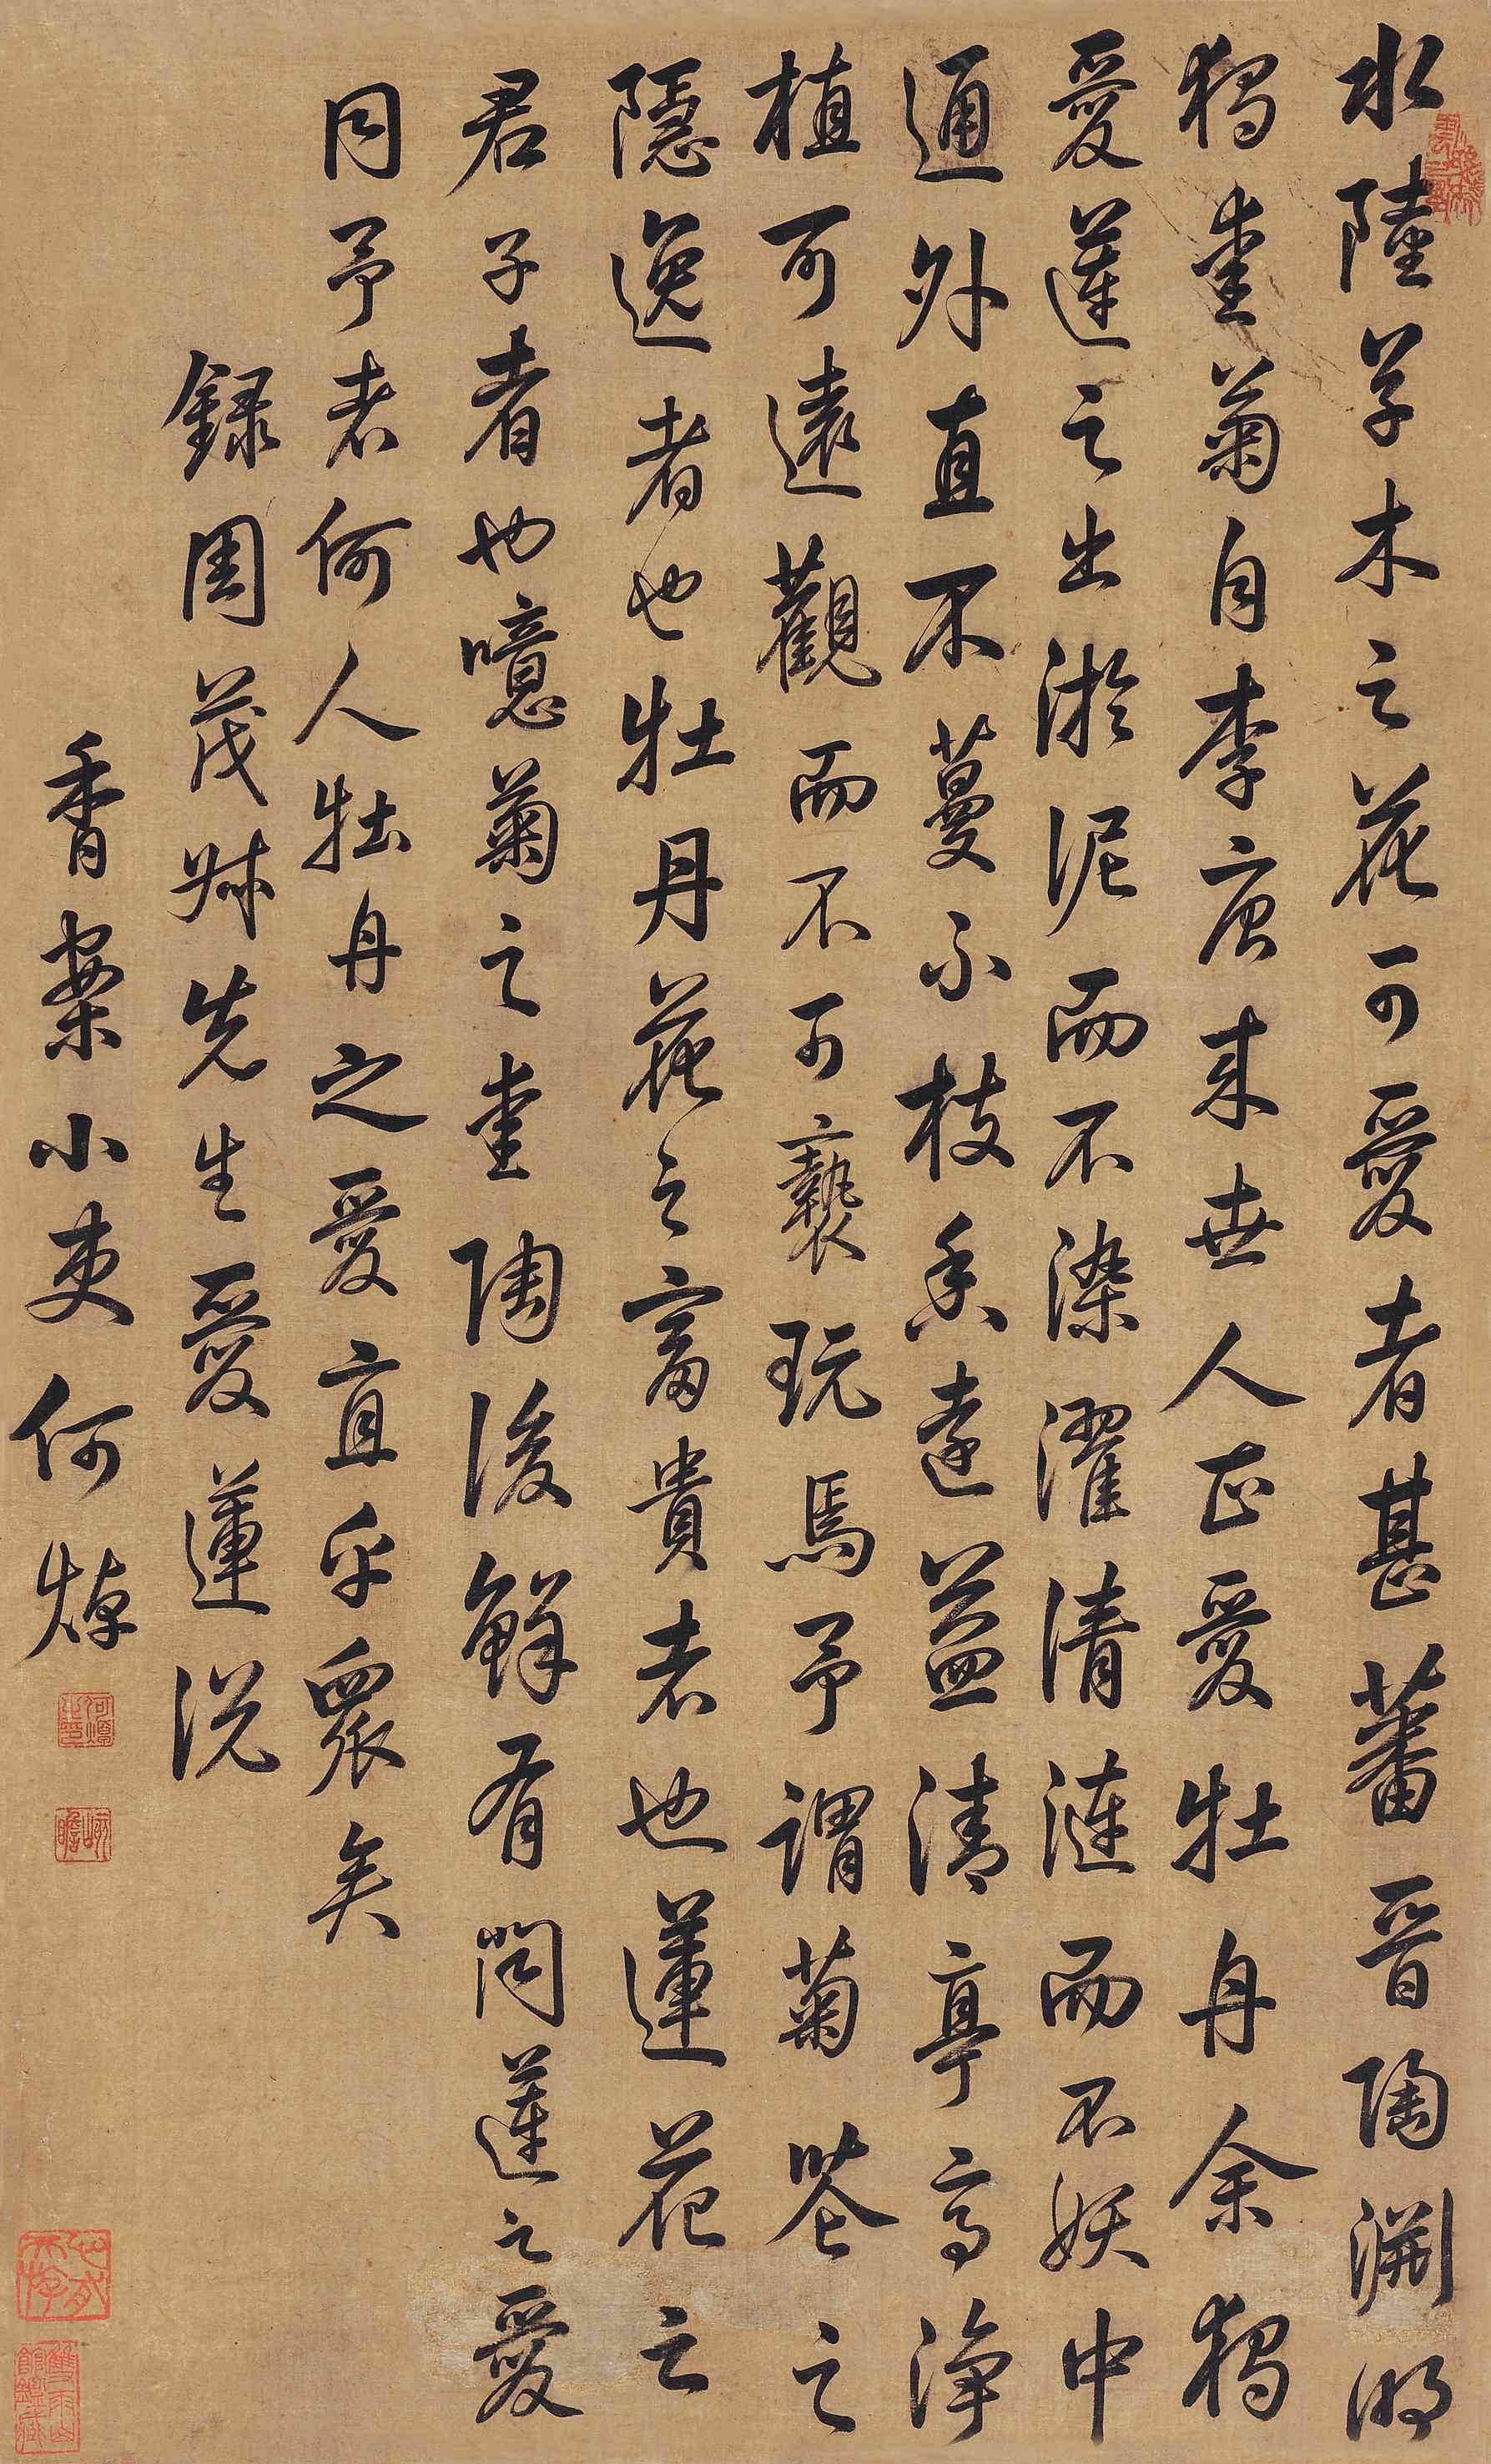 水陸草木之花可愛者甚蕃晉陶淵明
獨愛菊自李唐来世人正愛牡丹余獨
愛蓮之出淤泥而不染濯清漣而不妖中
通外直不蔓不枝香遠益清亭亭淨
植可遠觀而不可褻玩焉予謂菊花之
隱逸者也牡丹花之富貴者也蓮花之
君子者也噫菊之愛陶後鮮有聞蓮之愛
同予者何人牡丹之愛宜乎眾矣
録周茂叔先生愛蓮説
香案小吏何焯
何焯之印
屺瞻